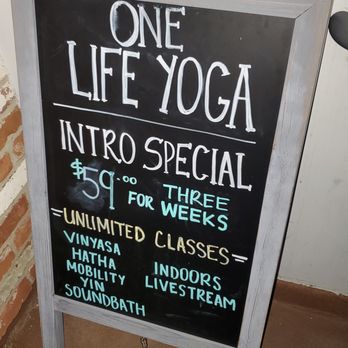 ONE
LIFE YOGA
INTRO SPECIAL
$59.00 THREE
FOR WEEKS
=UNLIMITED CLASSES=
VINYASA
HATHA
MOBILITY
YIN
SOUNDBATH
INDOORS
LIVESTREAM